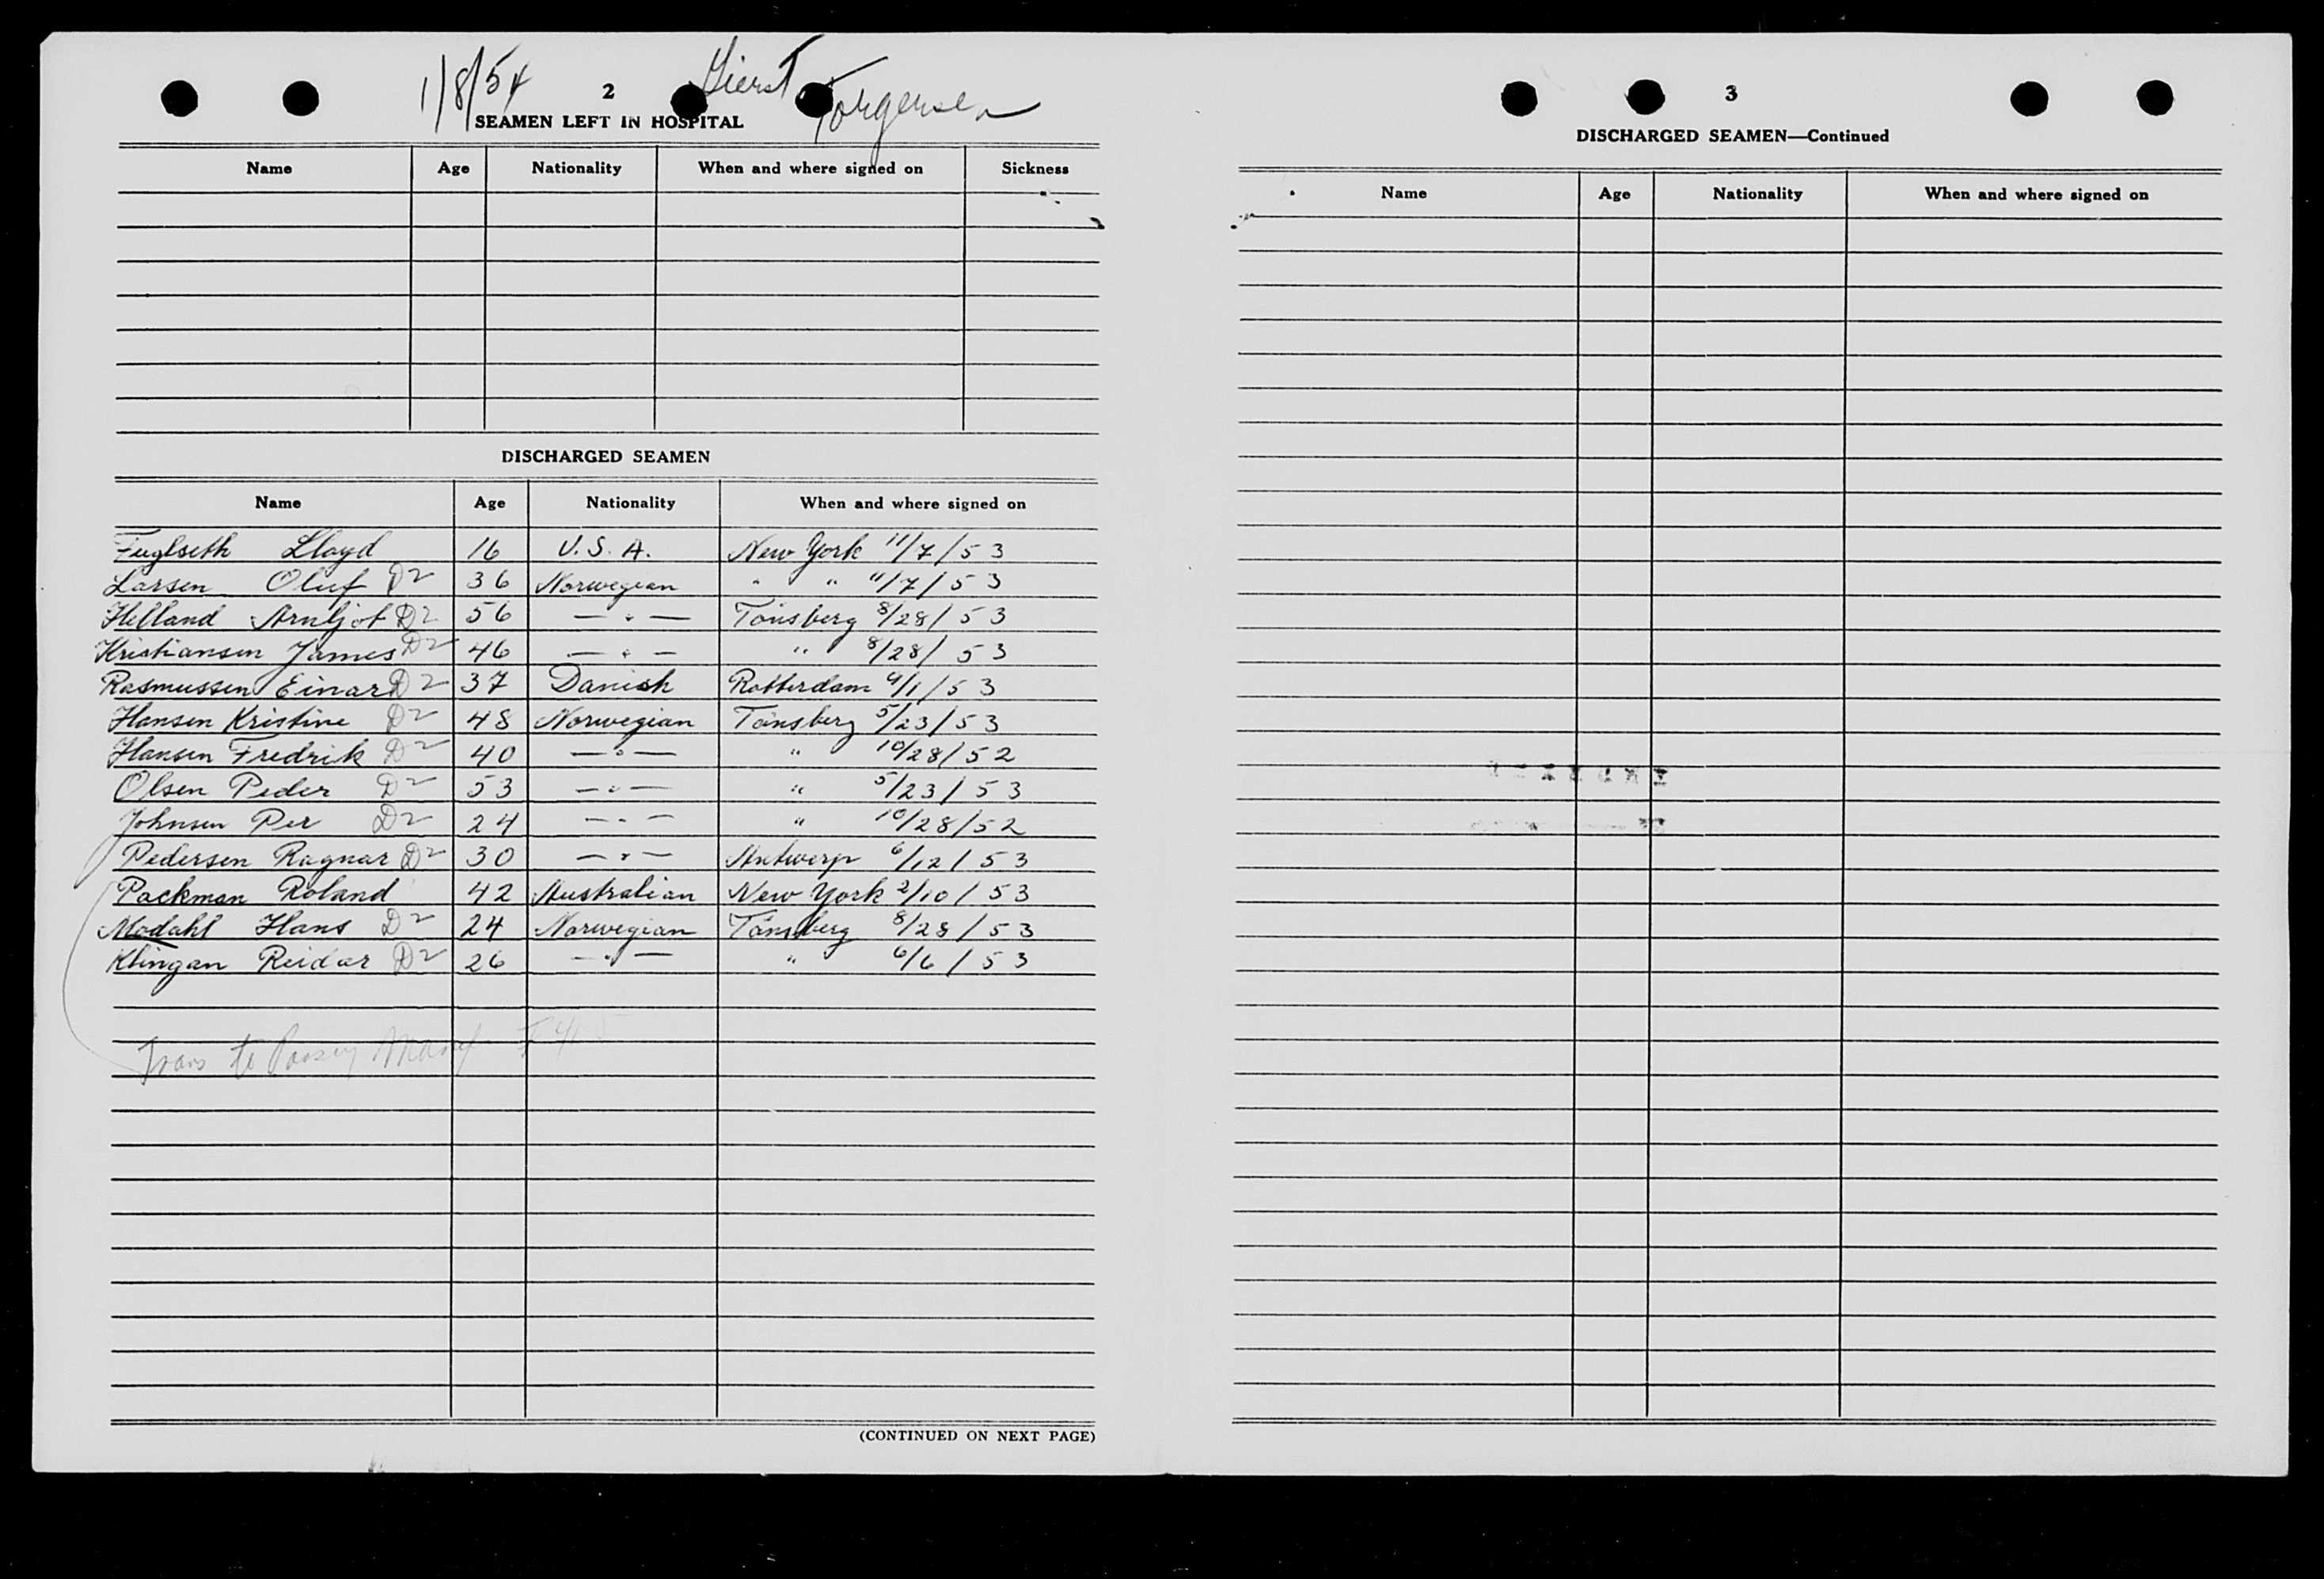 1/8/54 2 Gierst Torgersen
SEAMEN LEFT IN HOSPITAL
Name Age Nationality When and where signed on Sickness
DISCHARGED SEAMEN
Name Age Nationality When and where signed on
Fuglseth Lloyd 16 U.S.A. New York 11/7/53
Larsen Oluf D2 36 Norwegian " " 11/7/53
Helland Arnljot D2 56 — " — Tönsberg 8/28/53
Kristiansen James D2 46 — " — " 8/28/53
Rasmussen Einar D2 37 Danish Rotterdam 4/1/53
Hansen Kristine D2 48 Norwegian Tönsberg 5/23/53
Hansen Fredrik D2 40 — " — " 10/28/52
Olsen Peder D2 53 — " — " 5/23/53
Johnsen Per D2 24 — " — " 10/28/52
Pedersen Ragnar D2 30 — " — Antwerp 6/12/53
Packman Roland 42 Australian New York 2/10/53
Modahl Hans D2 24 Norwegian Tönsberg 8/28/53
Klingan Reidar D2 26 — " — " 6/6/53
Trans to Manif
(CONTINUED ON NEXT PAGE)
3
DISCHARGED SEAMEN—Continued
Name Age Nationality When and where signed on